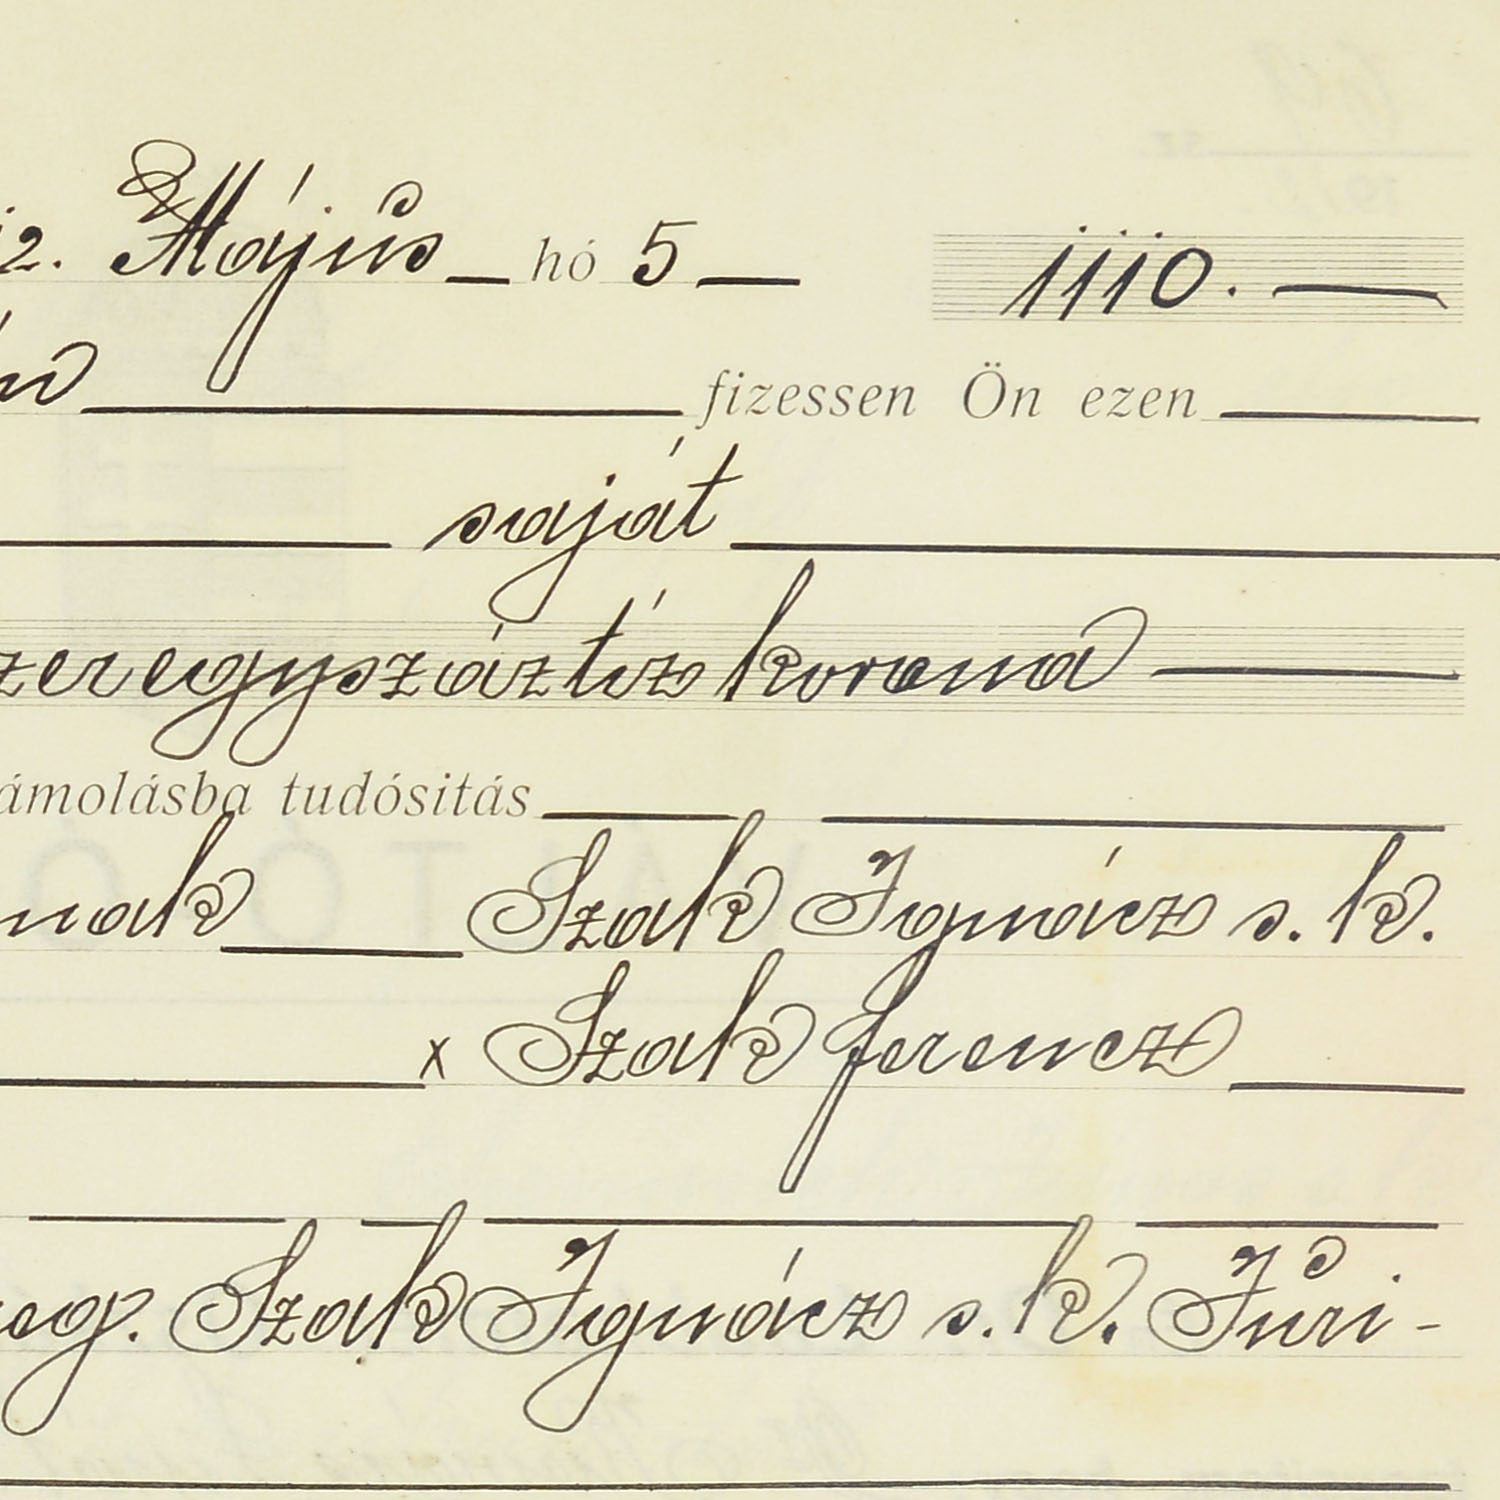 12. Május hó 5 1110.
fizessen Ön ezen
saját
zeregyszáztíz korona
ámolásba tudósitás
nak Szak Ignácz s. k.
x Szak ferencz
Szak Ignácz s. k. Furi-